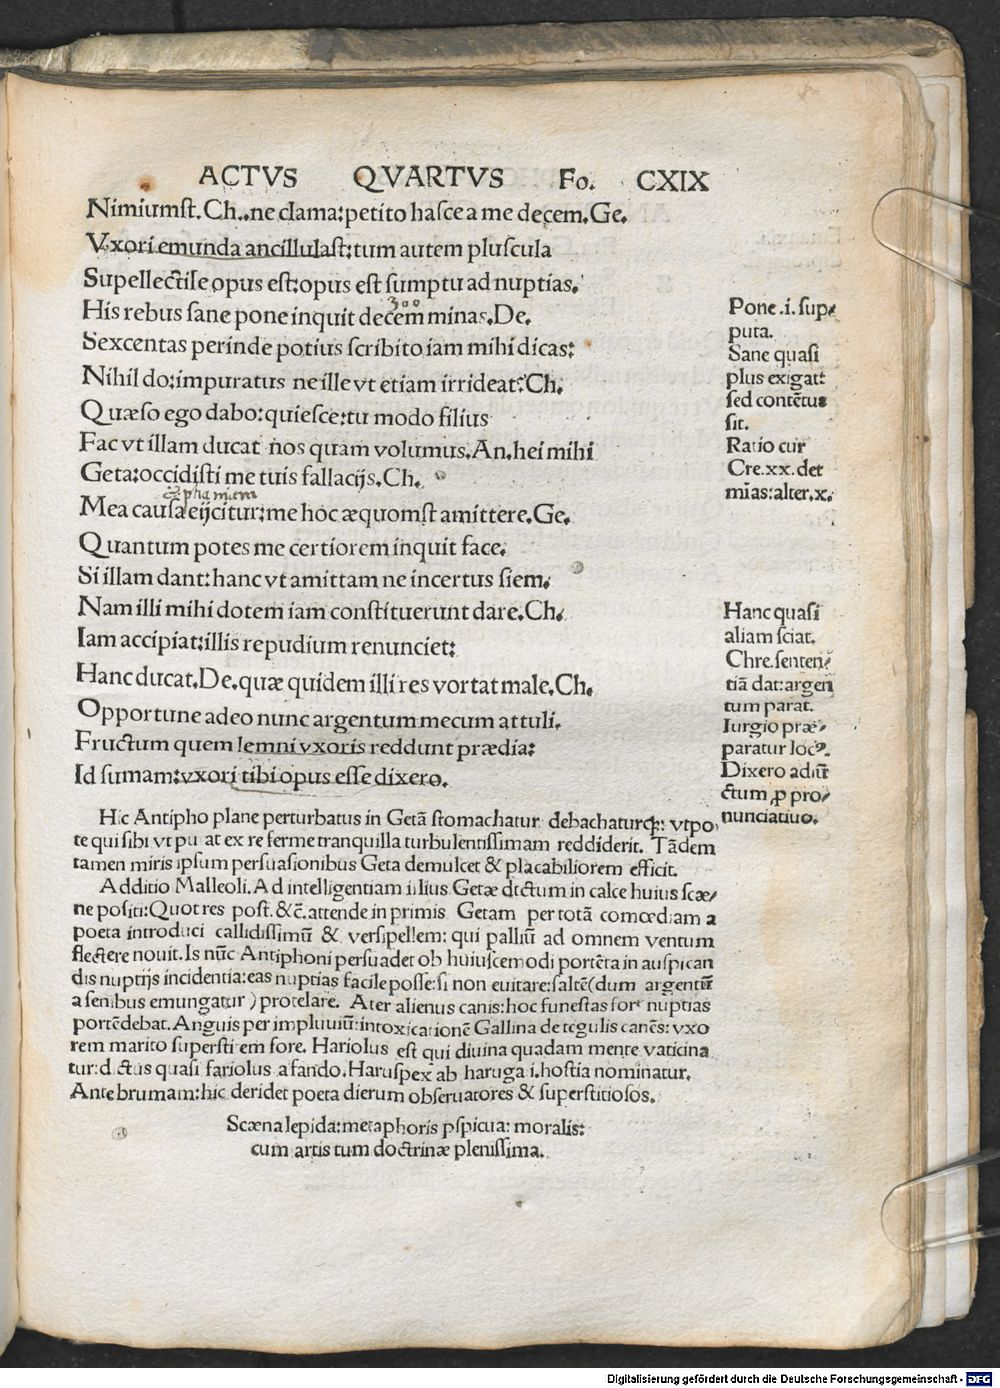 ACTVS QVARTVS Fo. CXIX
Nimiumst. Ch. ne clama: petito hasce a me decem. Ge.
Vxori emunda ancillulast: tum autem pluscula
Supellectile opus est: opus est sumptu ad nuptias.
300
His rebus sane pone inquit decem minas. De.
Sexcentas perinde potius scribito iam mihi dicas:
Nihil do: impuratus ne ille vt etiam irrideat? Ch.
Quæso ego dabo: quiesce: tu modo filius
Fac vt illam ducat nos quam volumus. An. hei mihi
Geta: occidisti me tuis fallacijs. Ch.
phaniem
Mea causa eijcitur: me hoc æquomst amittere. Ge.
Quantum potes me certiorem inquit face:
Si illam dant: hanc vt amittam ne incertus siem.
Nam illi mihi dotem iam constituerunt dare. Ch.
Iam accipiat: illis repudium renunciet:
Hanc ducat. De. quæ quidem illi res vortat male. Ch.
Opportune adeo nunc argentum mecum attuli.
Fructum quem lemni vxoris reddunt prædia:
Id sumam: vxori tibi opus esse dixero.
Pone .i. sup-
puta.
Sane quasi
plus exigat:
sed contētus
sit.
Ratio cur
Cre. xx. det
mīas: alter. x.
Hanc quasi
aliam sciat.
Chre. senten-
tiā dat: argen
tum parat.
Iurgio præ-
paratur locꝰ.
Dixero adiū
ctum ꝓ pro-
nunciatiuo.
Hic Antipho plane perturbatus in Getā stomachatur debachaturq̃: vtpo
te qui sibi vt putat ex re ferme tranquilla turbulentissimam reddiderit. Tādem
tamen miris ipsum persuasionibus Geta demulcet & placabiliorem efficit.
Additio Malleoli. Ad intelligentiam illius Getæ dictum in calce huius scæ-
ne positi: Quot res post. &c̄. attende in primis Getam per totā comœdiam a
poeta introduci callidissimū & versipellem: qui palliū ad omnem ventum
flectere nouit. Is nūc Antiphoni persuadet ob huiuscemodi portēta in auspican
dis nuptijs incidentia: eas nuptias facile posse: si non euitare: saltē (dum argentū
a senibus emungatur) protelare. Ater alienus canis: hoc funestas fore nuptias
portēdebat. Anguis per impluuiū: intoxicationē Gallina de tegulis canēs: vxo
rem marito superstitem fore. Hariolus est qui diuina quadam mente vaticina
tur: dictus quasi fariolus a fando. Haruspex ab haruga .i. hostia nominatur.
Ante brumam: hic deridet poeta dierum obseruatores & superstitiosos.
Scæna lepida: metaphoris pspicua: moralis:
cum artis tum doctrinæ plenissima.
Digitalisierung gefördert durch die Deutsche Forschungsgemeinschaft - DFG